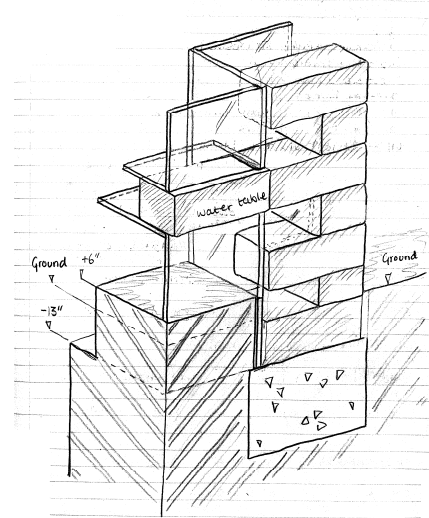 water table
Ground
+6"
Ground
-13"